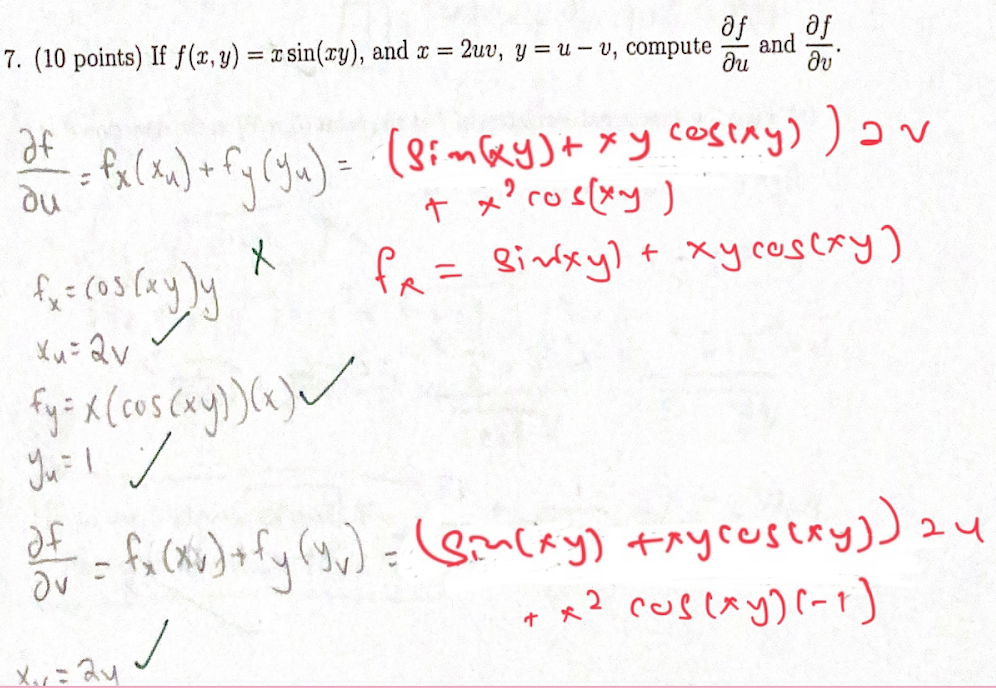 7. (10 points) If f(x, y) = x sin(xy), and x = 2uv, y = u − v, compute ∂f/∂u and ∂f/∂v.
∂f/∂u = fₓ(xᵤ) + f_y(yᵤ) = (sin(xy) + xy cos(xy)) 2v
+ x² cos(xy)
fₓ = cos(xy)y X
fₓ = sin(xy) + xy cos(xy)
xᵤ = 2v ✓
f_y = x(cos(xy))(x) ✓
yᵤ = 1 ✓
∂f/∂v = fₓ(xᵥ) + f_y(yᵥ) = (sin(xy) + xy cos(xy)) 2u
+ x² cos(xy)(-1)
xᵥ = 2u ✓